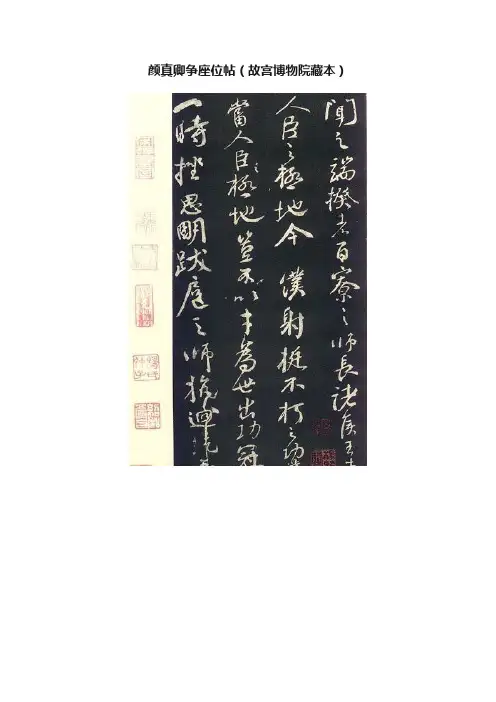 颜真卿争座位帖（故宫博物院藏本）
闻之端揆者百寮之师長诸侯王
人臣之極地今　僕射挺不朽之功業
當人臣極地豈不以才為世出功冠
一時挫思明跋扈之师抗迴紇